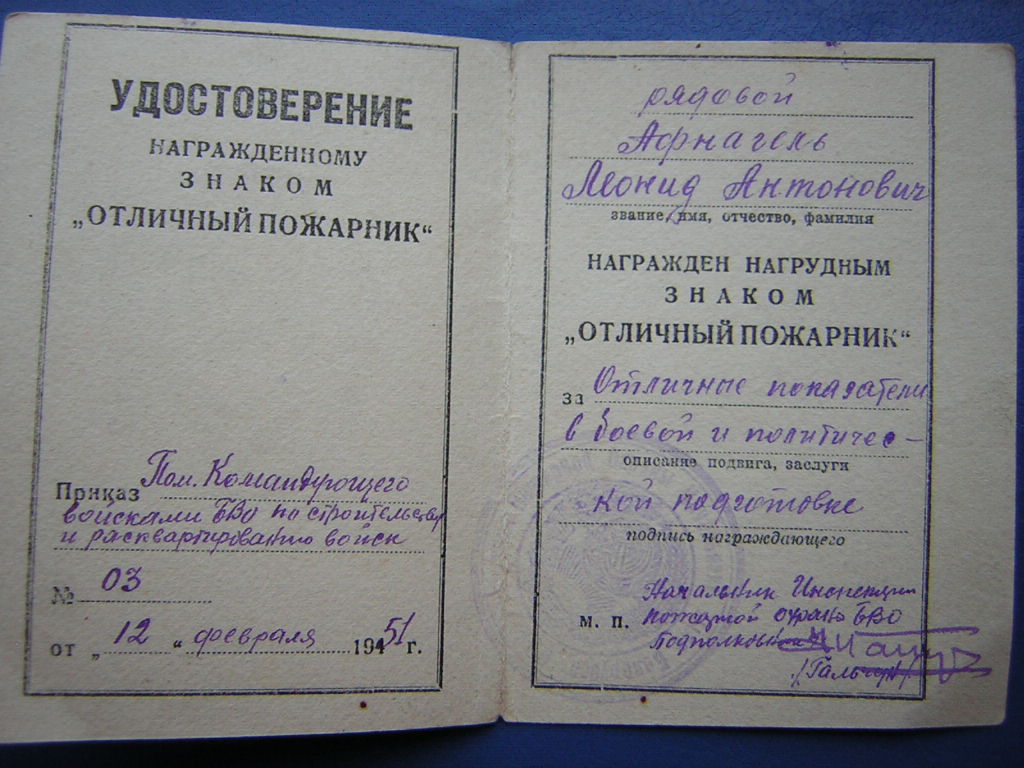 УДОСТОВЕРЕНИЕ
НАГРАЖДЕННОМУ
ЗНАКОМ
„ОТЛИЧНЫЙ ПОЖАРНИК“
Приказ Пом. Командующего
войсками БВО по строительству
и расквартированию войск
№ 03
от „12“ февраля 1951 г.
рядовой
Афнагель
Леонид Антонович
звание, имя, отчество, фамилия
НАГРАЖДЕН НАГРУДНЫМ
ЗНАКОМ
„ОТЛИЧНЫЙ ПОЖАРНИК“
за Отличные показатели
в боевой и политичес-
описание подвига, заслуги
кой подготовке
подпись награждающего
Начальник Инспекции
М. П. пожарной охраны БВО
Подполковник